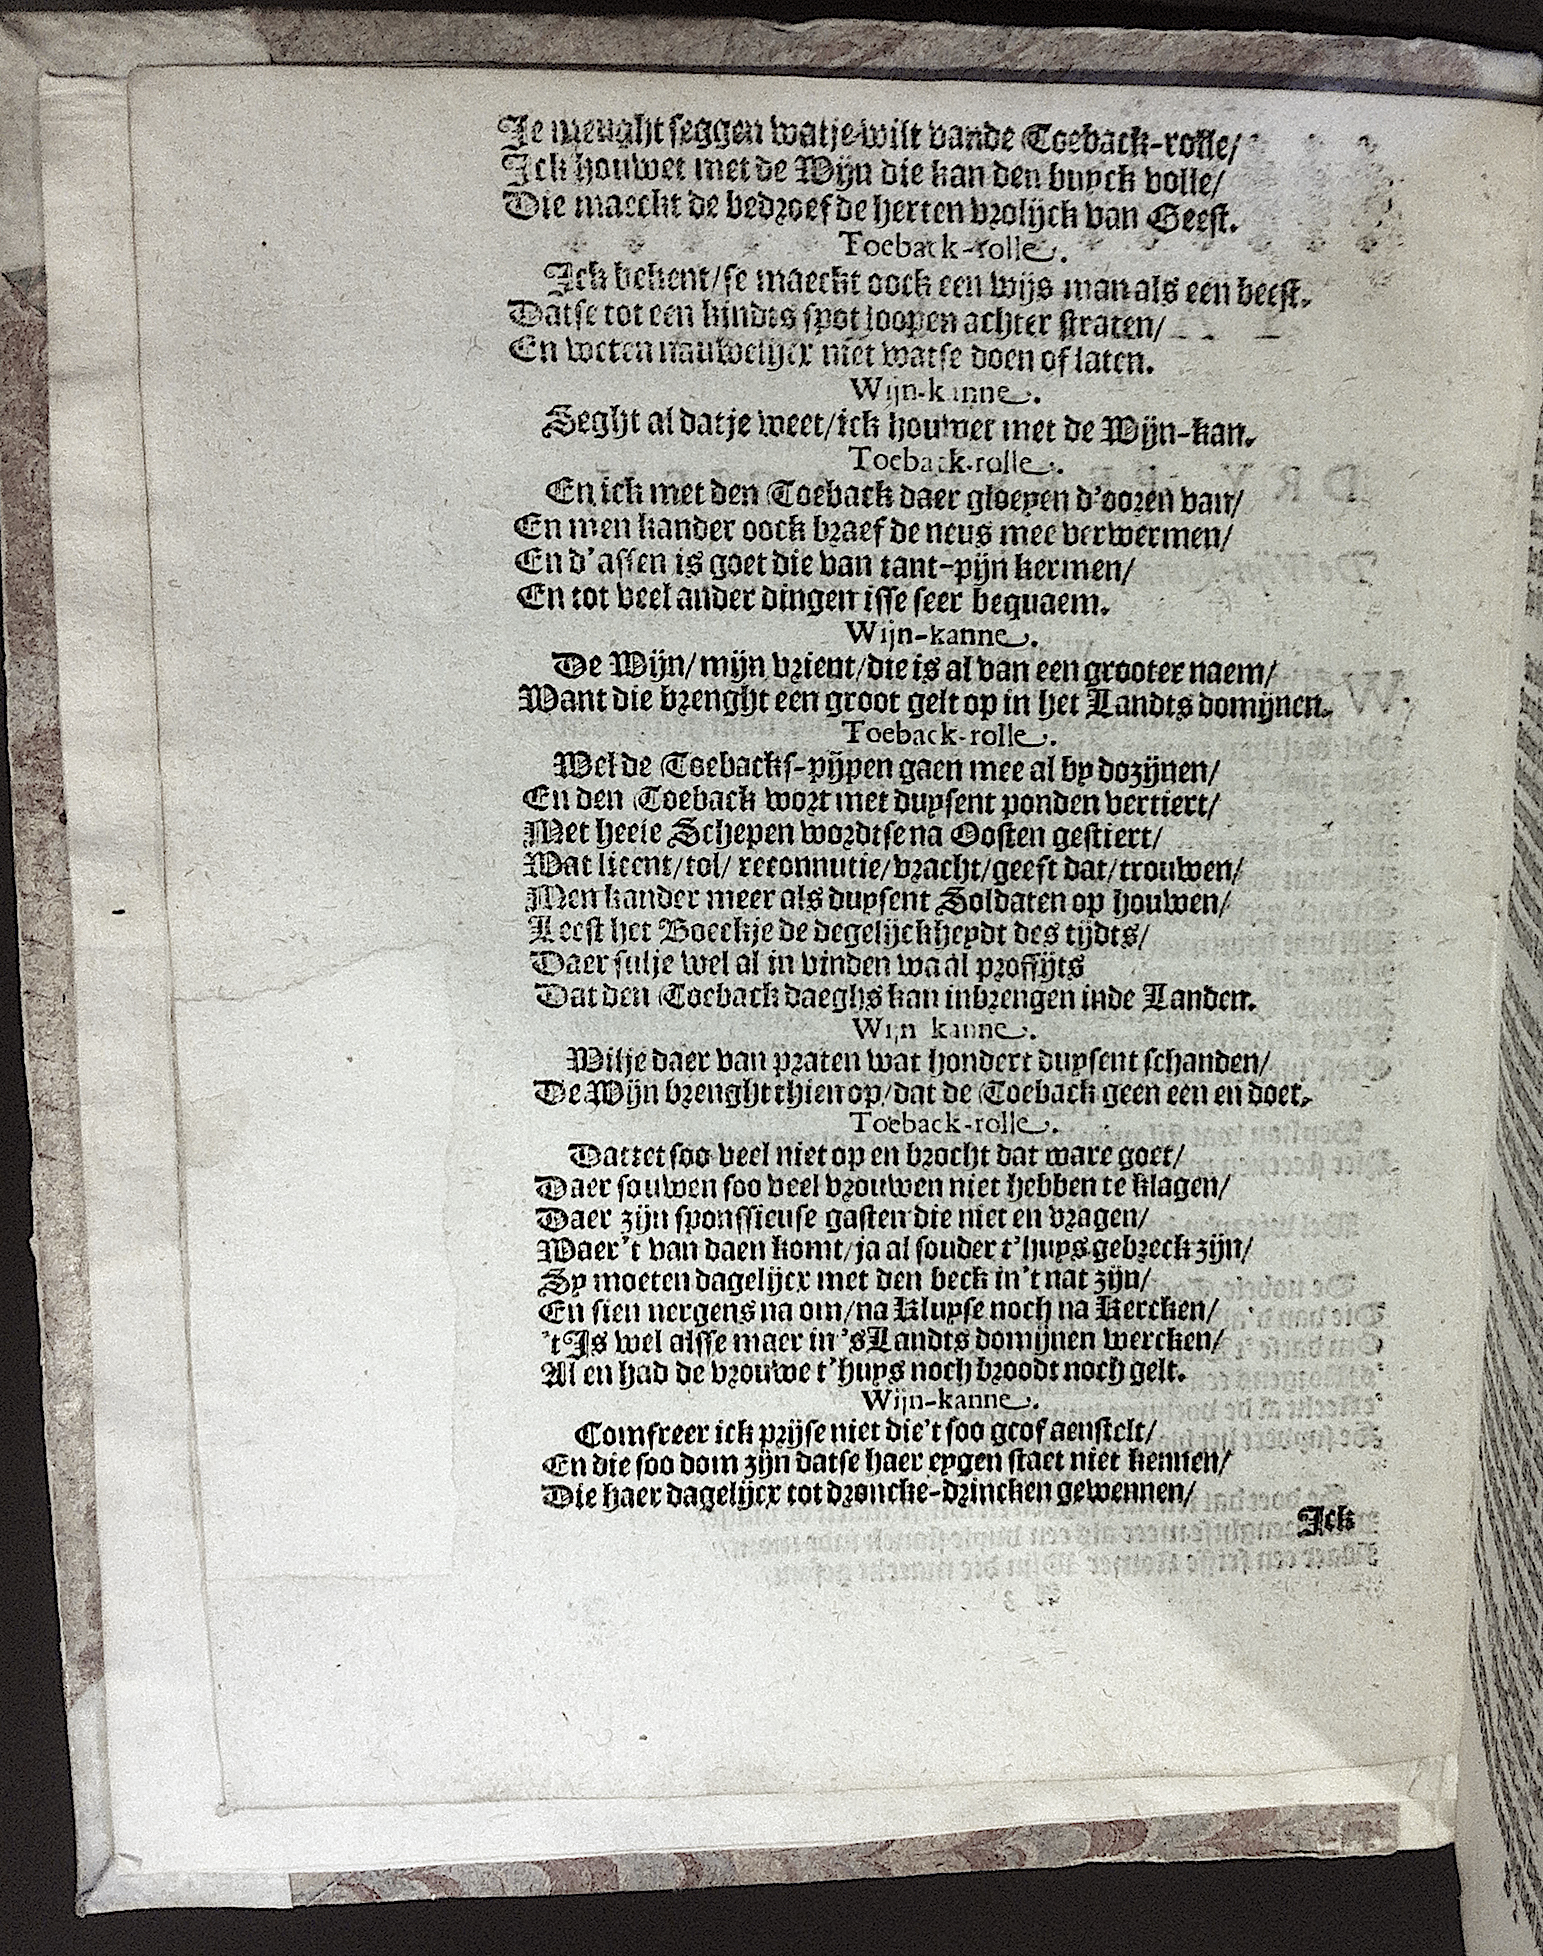 Je meught seggen watje wilt vande Toeback-rolle/
Ick houwet met de Wijn die kan den buyck volle/
Die maeckt de bedroefde herten vrolijck van Geest.
Toeback-rolle.
Ick bekent/se maeckt oock een wijs man als een beest.
Datse tot een kindts spot loopen achter straten/
En weten nauwelijcx niet watse doen of laten.
Wijn-kanne.
Seght al datje weet/ick houwet met de Wijn-kan.
Toeback-rolle.
En ick met den Toeback daer gloeyen d'ooren van/
En men kander oock braef de neus mee verwermen/
En d'assen is goet die van tant-pijn kermen/
En tot veel ander dingen isse seer bequaem.
Wijn-kanne.
De Wijn/mijn vrient/die is al van een grooter naem/
Want die brenght een groot gelt op in het Landts domijnen.
Toeback-rolle.
Wel de Toebacks-pijpen gaen mee al by dozijnen/
En den Toeback wort met duysent ponden vertiert/
Met heele Schepen wordtse na Oosten gestiert/
Wat licent/tol/ reconnutie/vracht/geeft dat/trouwen/
Men kander meer als duysent Soldaten op houwen/
Leest het Boeckje de degelijckheydt des tijdts/
Daer sulje wel al in vinden wa al proffijts
Dat den Toeback daeghs kan inbrengen inde Landen.
Wijn kanne.
Wilje daer van praten wat hondert duysent schanden/
De Wijn brenght thien op/dat de Toeback geen een en doet.
Toeback-rolle.
Dattet soo veel niet op en brocht dat ware goet/
Daer souwen soo veel vrouwen niet hebben te klagen/
Daer zijn sponssieuse gasten die niet en vragen/
Waer't van daen komt/ja al souder t'huys gebreck zijn/
Sy moeten dagelijcx met den beck in't nat zijn/
En sien nergens na om/na Kluyse noch na Kercken/
't Is wel alsse maer in 's Landts domijnen wercken/
Al en had de vrouwe t'huys noch broodt noch gelt.
Wijn-kanne.
Comfreer ick prijse niet die't soo grof aenstelt/
En die soo dom zijn datse haer eygen staet niet kennen/
Die haer dagelijcx tot droncke-drincken gewennen/
Ick